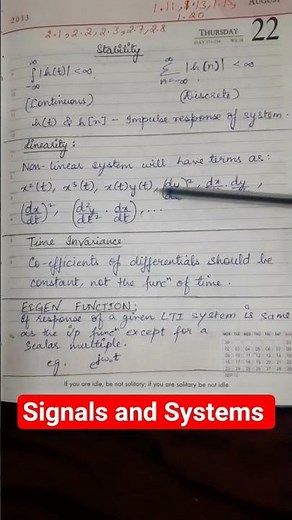 2013
1.11, 1.13, 1.15,
1.20
AUGUST
2.1, 2.2, 2.3, 2.7, 2.8
THURSDAY
22
Stability
∫_{-∞}^{∞} |h(t)| < ∞
∑_{n=-∞}^{∞} |h[n]| < ∞
(Continuous)
(Discrete)
h(t) & h[n] - Impulse response of system.
Linearity:
Non-linear system will have terms as:
x²(t), x³(t), x(t)y(t), (dy/dt)², dx/dt . dy/dt,
(dx/dt)², (d²y/dt² . dx/dt), ....
Time Invariance
Co-efficients of differentials should be
constant, not the funcⁿ of time.
EIGEN FUNCTION:
If response of a given LTI system is same
as the i/p funcⁿ except for a
scalar multiple.
eg. e^{jωt}
If you are idle, be not solitary, if you are solitary be not idle
Signals and Systems